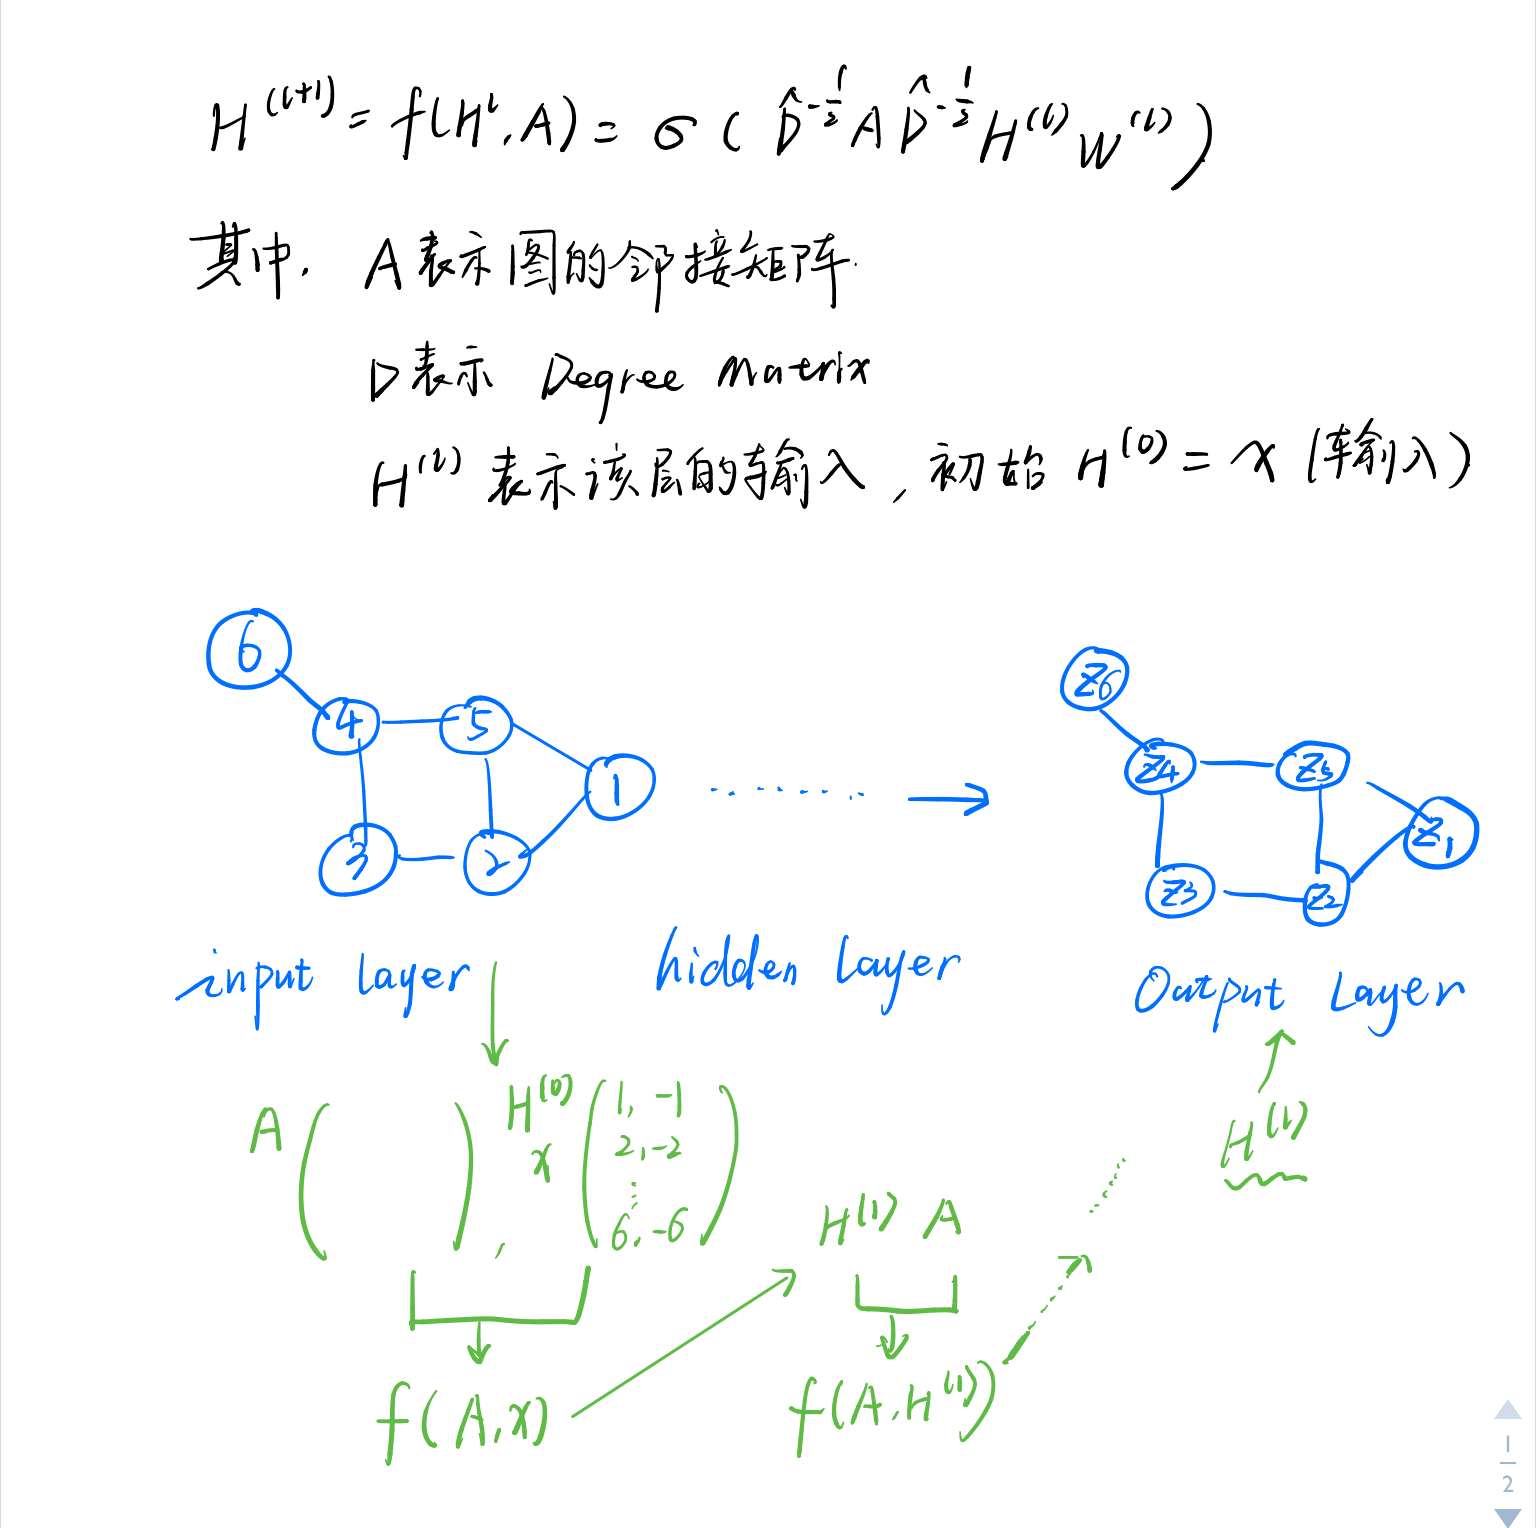 H^(l+1) = f(H^l, A) = σ( D̂^-½ A D̂^-½ H^(l) W^(l) )
其中, A表示图的邻接矩阵.
D表示 Degree Matrix
H^(l) 表示该层的输入, 初始 H^(0) = x (输入)
6
4 5
1
3 2
Z6
Z4 Z5
Z1
Z3 Z2
input layer
hidden layer
Output Layer
A ( ) , H^(0) x
1, -1
2, -2
⋮
6, -6
H^(1) A
H^(l)
f(A, x)
f(A, H^(1))
1
2